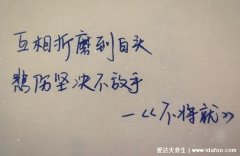 互相折磨到白头
悲伤坚决不放手
—《不将就》
爱达夫养生 | www.idafoo.com